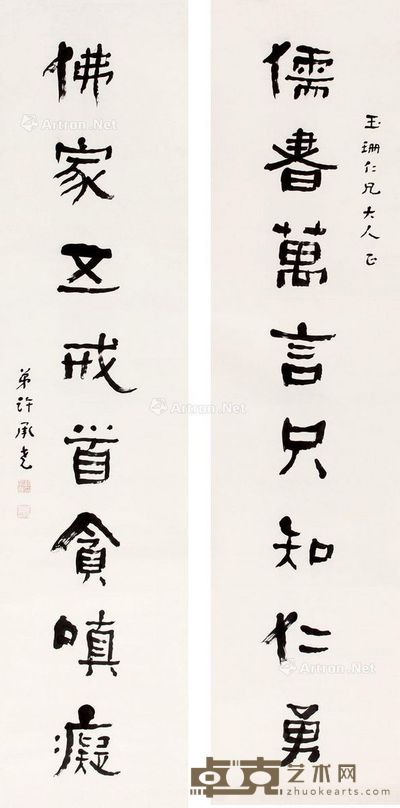 玉珊仁兄大人正
儒書萬言只知仁勇
佛家五戒首貪嗔癡
弟許承堯
Artron.Net
Artron.Net
Artron.Net
卓克艺术网
zhuokearts.com